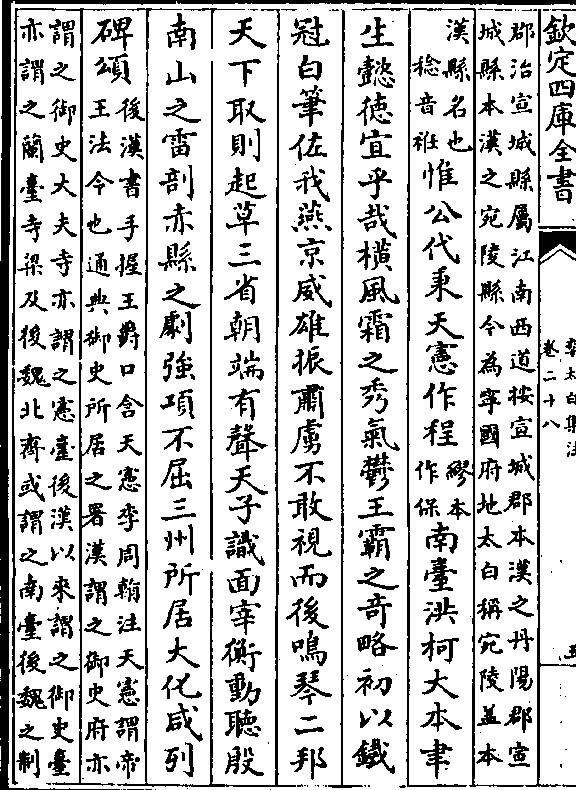 欽定四庫全書
李太白集注
卷二十八
五
郡治宣城縣屬江南西道按宣城郡本漢之丹陽郡宣
城縣本漢之宛陵縣今為寧國府地太白稱宛陵蓋本
漢縣名也
稔音衽
惟公代秉天憲作程
繆本
作保
南臺洪柯大本聿
生懿德宜乎哉橫風霜之秀氣鬱王霸之奇略初以鐵
冠白筆佐我燕京威雄振肅虜不敢視而後鳴琴二邦
天下取則起草三省朝端有聲天子識面宰衡動聽殷
南山之雷剖赤縣之劇強項不屈三州所居大化咸列
碑頌
後漢書手握王爵口含天憲李周翰注天憲謂帝
王法令也通典御史所居之署漢謂之御史府亦
謂之御史大夫寺亦謂之憲臺後漢以來謂之御史臺
亦謂之蘭臺寺梁及後魏北齊或謂之南臺後魏之制